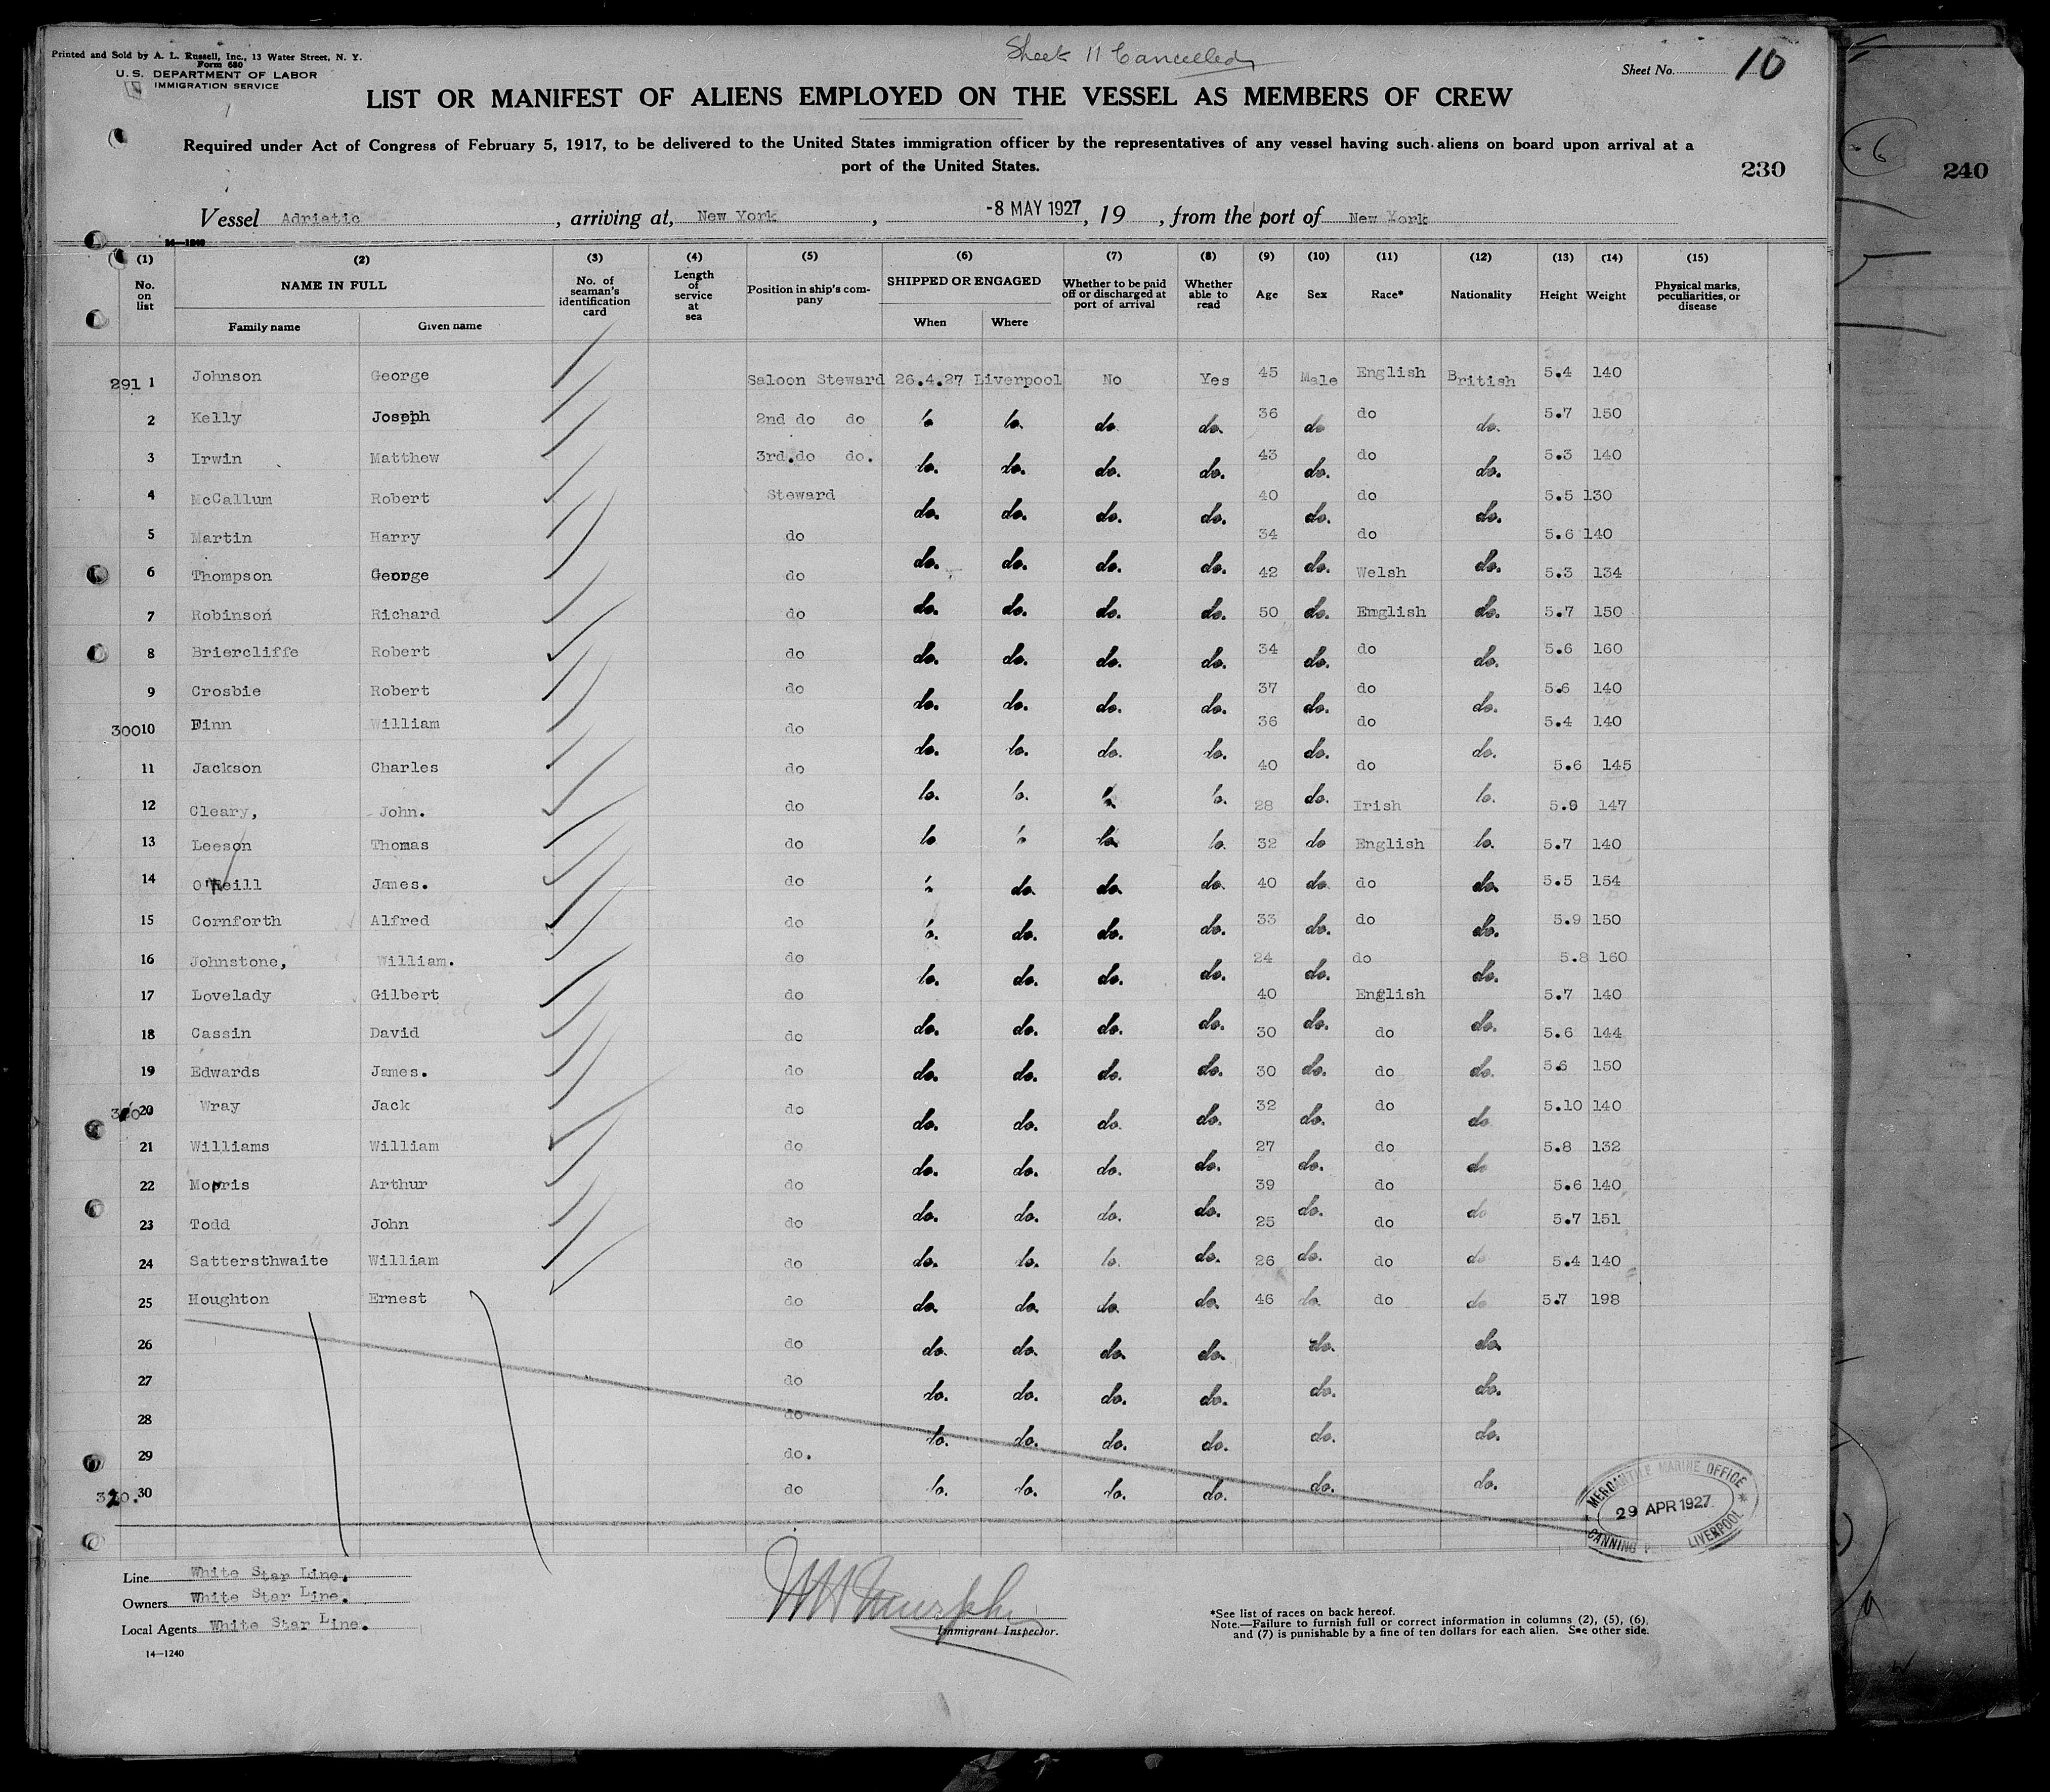 Printed and Sold by A. L. Russell, Inc., 13 Water Street, N. Y.
Form 680
U. S. DEPARTMENT OF LABOR
IMMIGRATION SERVICE
Sheet 11 Cancelled
Sheet No. 10
LIST OR MANIFEST OF ALIENS EMPLOYED ON THE VESSEL AS MEMBERS OF CREW
Required under Act of Congress of February 5, 1917, to be delivered to the United States immigration officer by the representatives of any vessel having such aliens on board upon arrival at a
port of the United States.
230
240
6
Vessel Adriatic, arriving at, New York, -8 MAY 1927, 19 , from the port of New York
14—1240
(1) (2) (3) (4) (5) (6) (7) (8) (9) (10) (11) (12) (13) (14) (15)
No. on list NAME IN FULL Family name Given name No. of seaman's identification card Length of service at sea Position in ship's company SHIPPED OR ENGAGED When Where Whether to be paid off or discharged at port of arrival Whether able to read Age Sex Race* Nationality Height Weight Physical marks, peculiarities, or disease
291 1 Johnson George Saloon Steward 26.4.27 Liverpool No Yes 45 Male English British 5.4 140
2 Kelly Joseph 2nd do do do. do. do. do. 36 do do do. 5.7 150
3 Irwin Matthew 3rd.do do. do. do. do. do. 43 do. do do. 5.3 140
4 McCallum Robert Steward do. do. do. do. 40 do. do do. 5.5 130
5 Martin Harry do do. do. do. do. 34 do. do do. 5.6 140
6 Thompson George do do. do. do. do. 42 do. Welsh do. 5.3 134
7 Robinson Richard do do. do. do. do. 50 do. English do. 5.7 150
8 Briercliffe Robert do do. do. do. do. 34 do. do do. 5.6 160
9 Crosbie Robert do do. do. do. do. 37 do. do do. 5.6 140
300 10 Finn William do do. do. do. do. 36 do. do do. 5.4 140
11 Jackson Charles do do. do. do. do. 40 do. do do. 5.6 145
12 Cleary, John. do do. do. do. do. 28 do. Irish do. 5.9 147
13 Leeson Thomas do do do. do. do. 32 do English do. 5.7 140
14 O'Neill James. do do. do. do. do. 40 do. do do. 5.5 154
15 Cornforth Alfred do do. do. do. do. 33 do. do do. 5.9 150
16 Johnstone, William. do do. do. do. do. 24 do. do do. 5.8 160
17 Lovelady Gilbert do do. do. do. do. 40 do. English do. 5.7 140
18 Cassin David do do. do. do. do. 30 do. do do. 5.6 144
19 Edwards James. do do. do. do. do. 30 do. do do. 5.6 150
20 Wray Jack do do. do. do. do. 32 do. do do 5.10 140
21 Williams William do do. do. do. do. 27 do. do do 5.8 132
22 Morris Arthur do do. do. do. do. 39 do. do do 5.6 140
23 Todd John do do. do. do. do. 25 do. do do 5.7 151
24 Sattersthwaite William do do. do. do. do. 26 do. do do 5.4 140
25 Houghton Ernest do do. do. do. do. 46 do. do do 5.7 198
26 do do. do. do. do. do. do.
27 do do. do. do. do. do. do.
28 do do. do. do. do. do. do.
29 do. do. do. do. do. do. do.
30 do
MERCANTILE MARINE OFFICE
29 APR 1927
CANNING LIVERPOOL
Line White Star Line.
Owners White Star Line.
Local Agents White Star Line.
14—1240
Murphy
Immigrant Inspector.
*See list of races on back hereof.
Note.—Failure to furnish full or correct information in columns (2), (5), (6),
and (7) is punishable by a fine of ten dollars for each alien. See other side.